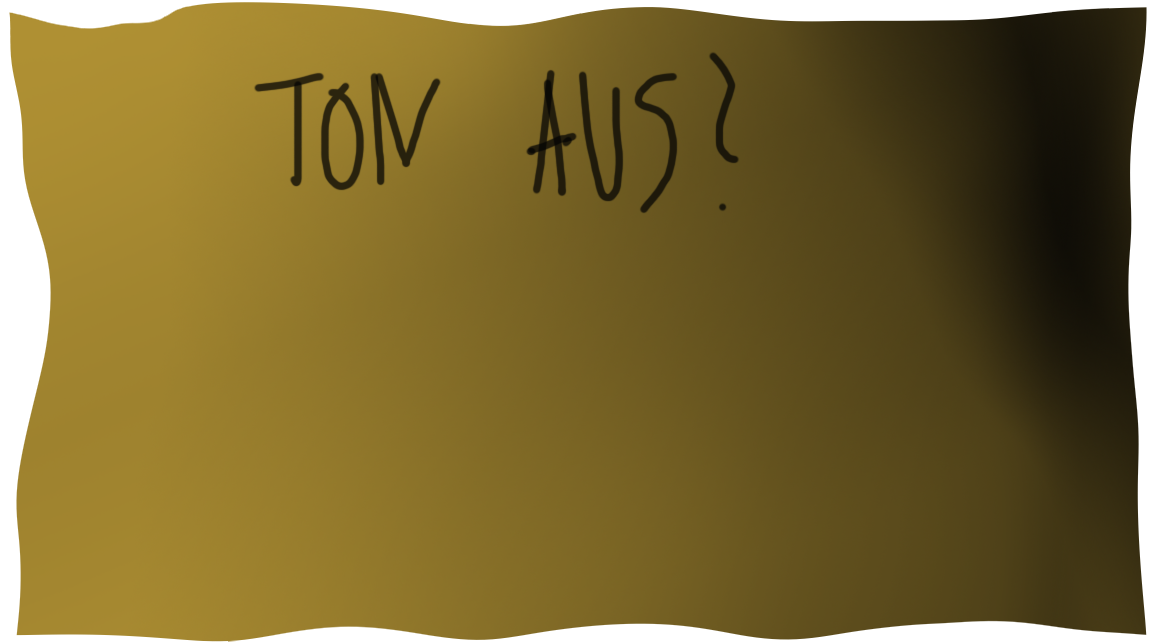 TON AUS?